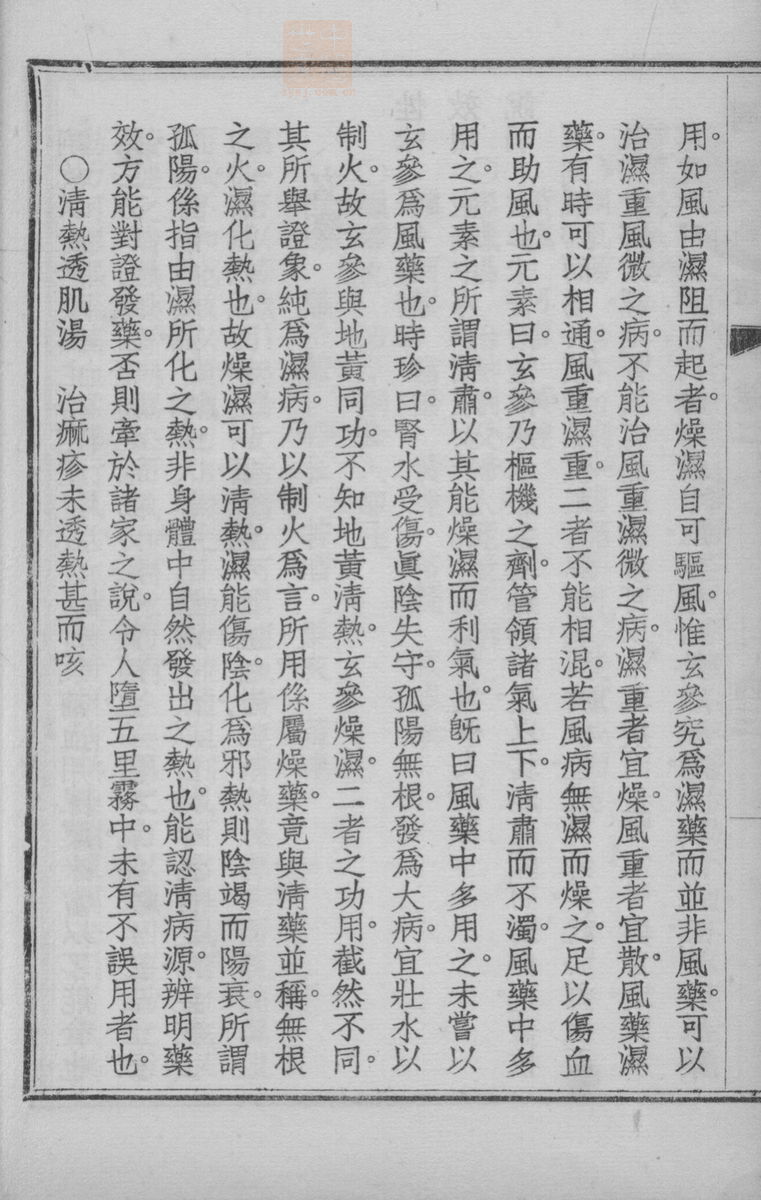 用。如風由濕阻而起者。燥濕自可驅風。惟玄參究爲濕藥而並非風藥。可以
治濕重風微之病。不能治風重濕微之病。濕重者宜燥。風重者宜散。風藥濕
藥。有時可以相通。風重濕重。二者不能相混。若風病無濕而燥之。足以傷血
而助風也。元素曰。玄參乃樞機之劑。管領諸氣上下。清肅而不濁。風藥中多
用之。元素之所謂清肅。以其能燥濕而利氣也。旣曰風藥中多用之。未嘗以
玄參爲風藥也。時珍曰。腎水受傷。眞陰失守。孤陽無根。發爲大病。宜壯水以
制火。故玄參與地黃同功。不知地黃清熱。玄參燥濕。二者之功用。截然不同。
其所舉證象。純爲濕病。乃以制火爲言。所用係屬燥藥。竟與清藥並稱。無根
之火。濕化熱也。故燥濕可以清熱。濕能傷陰。化爲邪熱則陰竭而陽衰。所謂
孤陽。係指由濕所化之熱。非身體中自然發出之熱也。能認清病源。辨明藥
效。方能對證發藥。否則牽於諸家之說。令人墮五里霧中。未有不誤用者也。
○清熱透肌湯　治痲疹未透熱甚而咳